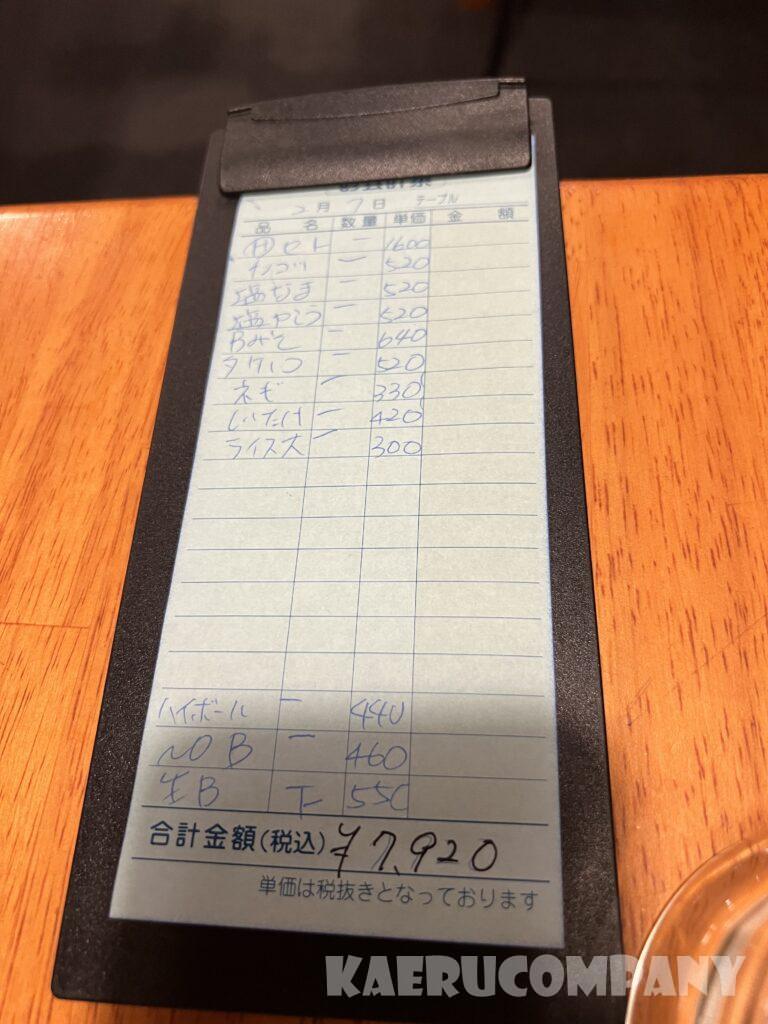 お会計票
2月 7日 テーブル
品名 数量 単価 金額
サセト 一 1600
ナンコツ 一 520
塩なま 一 520
塩やみつ 一 520
Bみそ 一 640
タケノコ 一 520
ネギ 一 330
しいたけ 一 420
ライス大 一 300
ハイボール 一 440
ノロB 一 460
生B 丅 550
合計金額(税込) ¥7,920
単価は税抜きとなっております
KAERUCOMPANY